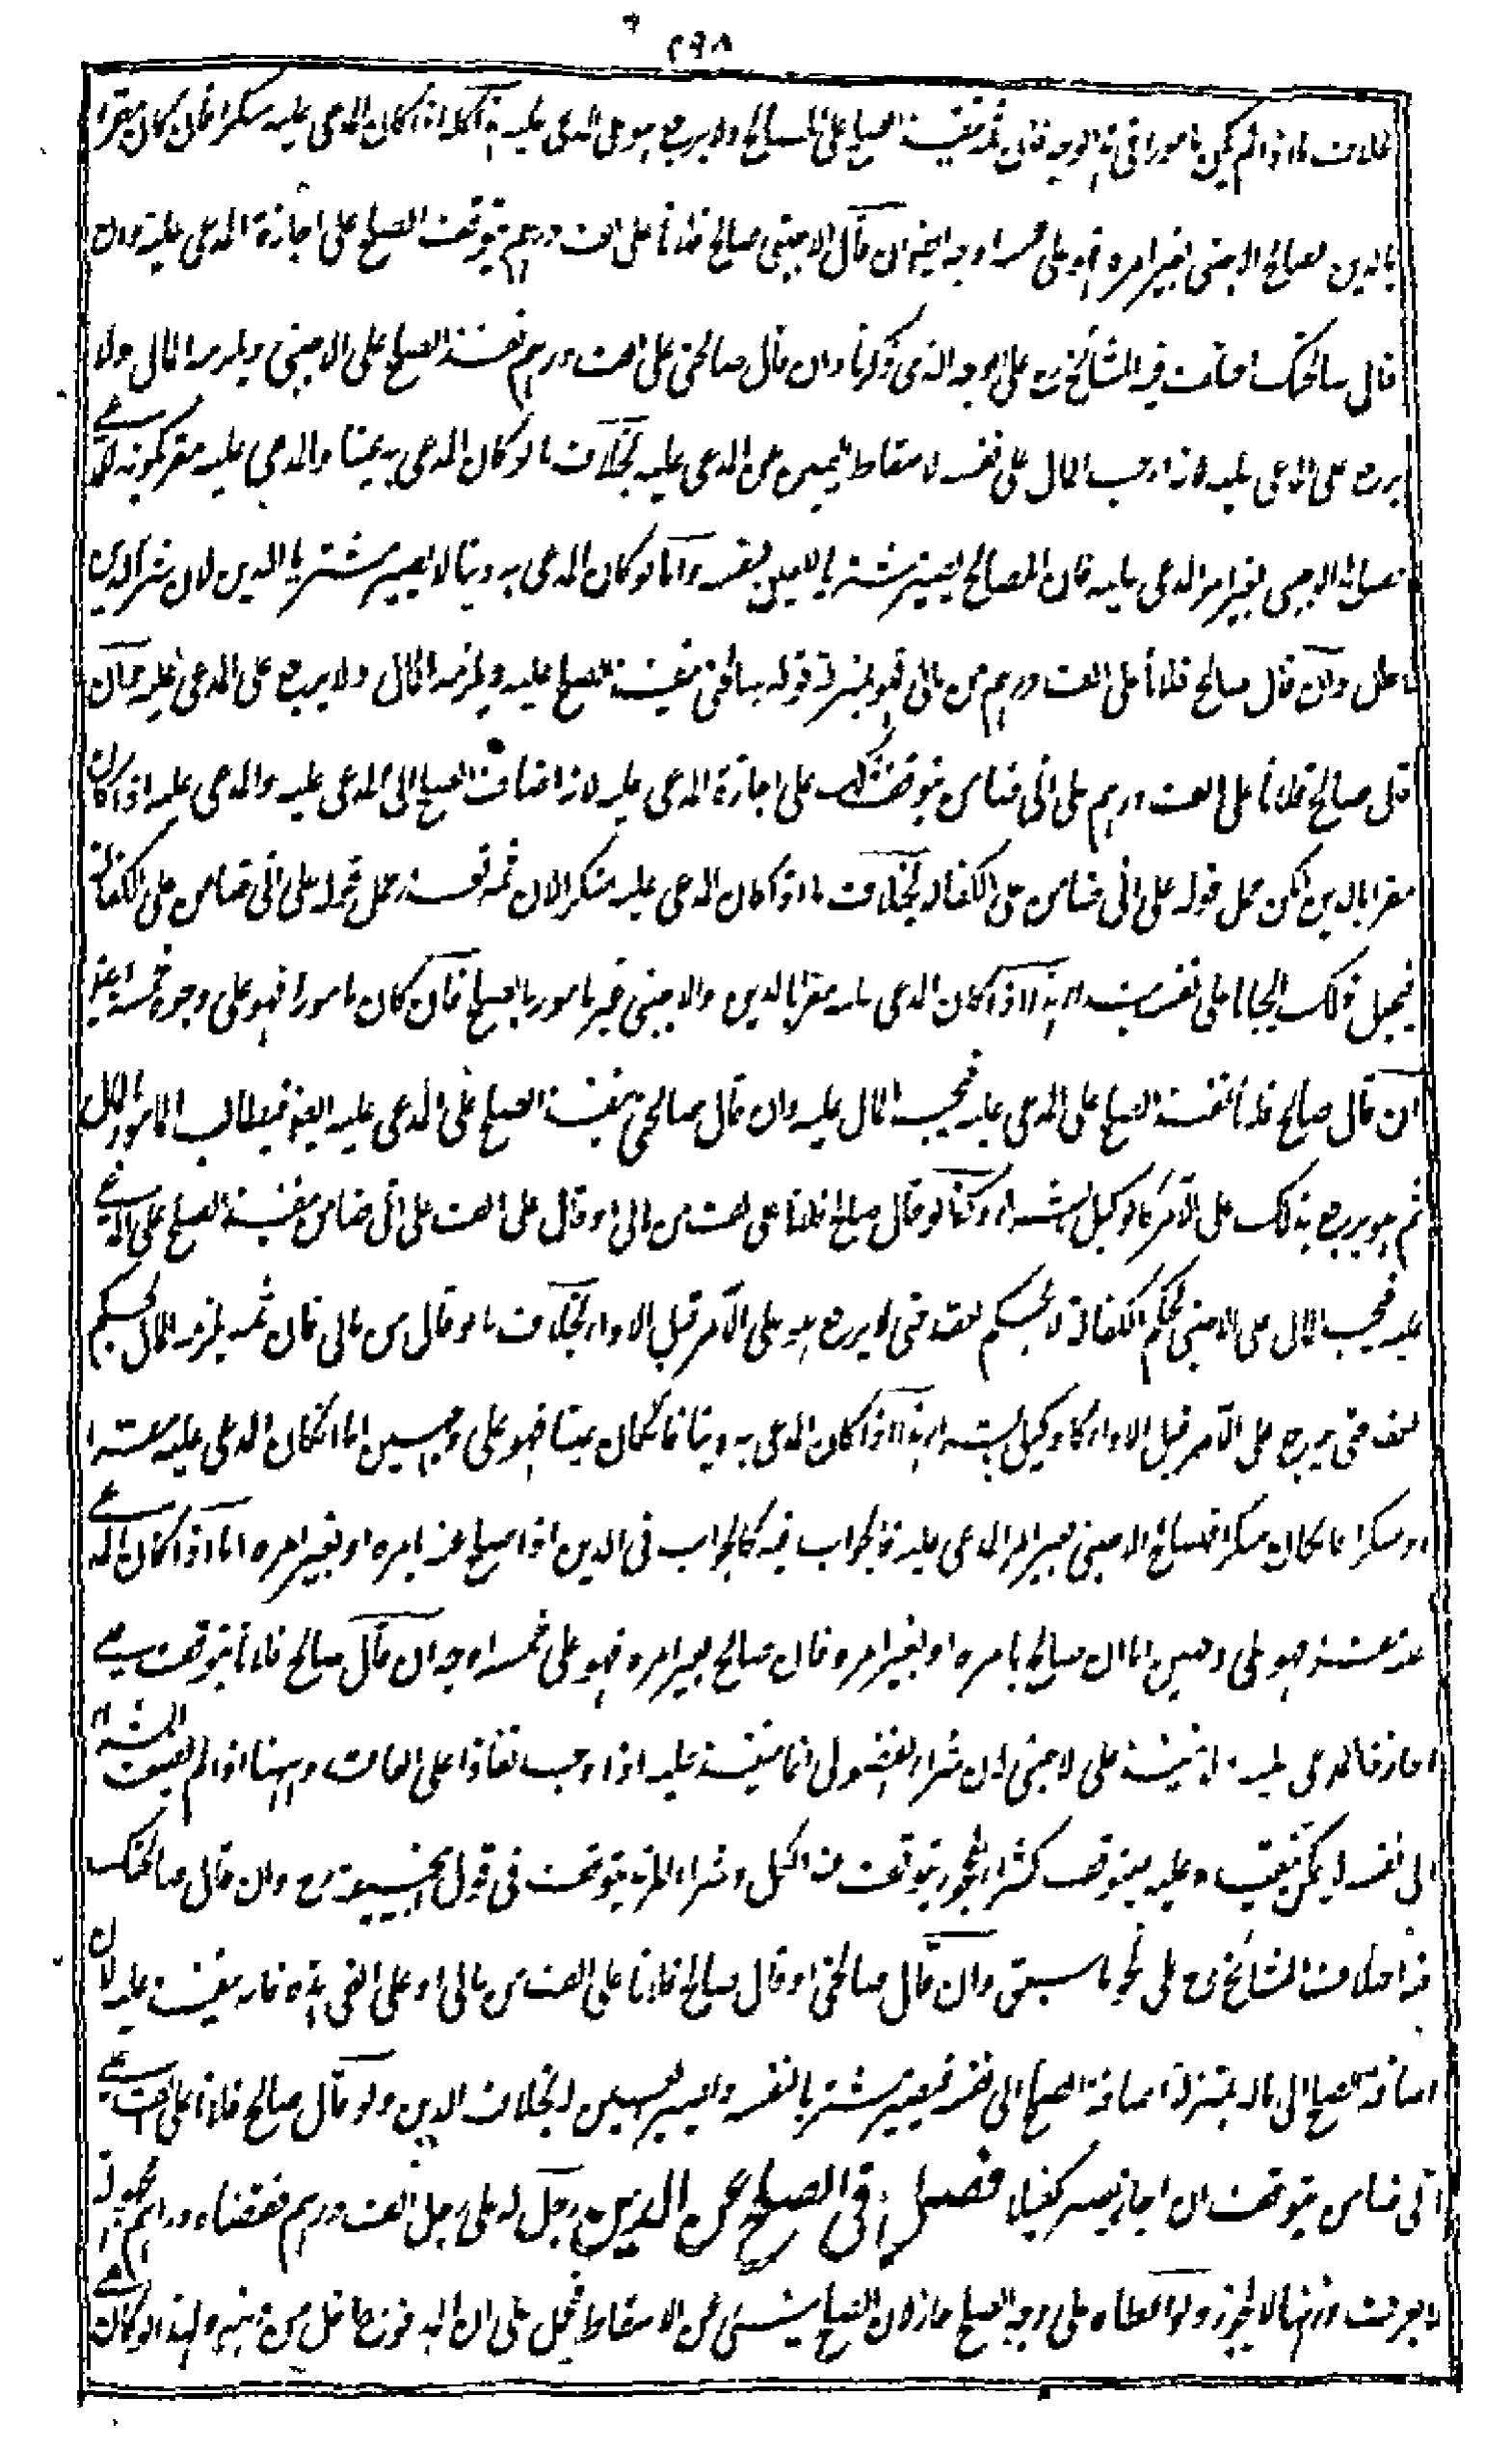 ٢٩٨
بخلاف ما اذا لم يكن مامورا فى هذا الوجه فان ثمه ينفذ الصلح على المصالح ولا يرجع هو على المدعى عليه هذا كله اذا كان المدعى عليه منكرا فان كان مقرا
بالدين فصالح الاجنبى بغير امره فهو على خمسة اوجه ايضا ان قال الاجنبى صالح فلانا على الف درهم يتوقف الصلح على اجازة المدعى عليه وان
قال صالحتك اختلف فيه المشائخ رح على الوجه الذى ذكرنا وان قال صالحنى على الف درهم نفذ الصلح على الاجنبى ويلزمه المال ولا
يرجع على المدعى عليه لانه اوجب المال على نفسه لاسقاط اليمين عن المدعى عليه بخلاف ما لو كان المدعى به عينا والمدعى عليه مقر بكونه للمدعى
فصالح الاجنبى بغير امر المدعى عليه فان المصالح يصير مشتريا للعين لنفسه واما لو كان المدعى به دينا لا يصير مشتريا للدين لان شراء الدين
باطل وان قال صالح فلانا على الف درهم من مالى فهو بمنزلة قوله صالحنى ينفذ الصلح عليه ويلزمه المال ولا يرجع على المدعى عليه وان
قال صالح فلانا على الف درهم على انى ضامن يتوقف ذلك على اجازة المدعى عليه لانه اضاف الصلح الى المدعى عليه والمدعى عليه اذا كان
مقرا بالدين امكن حمل قوله على انى ضامن على الكفالة بخلاف ما اذا كان المدعى عليه منكرا لان ثمه تعذر حمل قوله على انى ضامن على الكفالة
فيجعل ذلك ايجابا على نفسه هذا اذا كان المدعى عليه مقرا بالدين والاجنبى غير مامور بالصلح فان كان مامورا فهو على وجوه خمسة ايضا
ان قال صالح فلانا نفذ الصلح على المدعى عليه فيجب المال عليه وان قال صالحنى ينفذ الصلح على المدعى عليه ايضا فيطالب المامور بالمال
ثم هو يرجع بذلك على الآمر كالوكيل بالشراء وكذا لو قال صالح فلانا على الف من مالى او قال على الف على انى ضامن ينفذ الصلح على المدعى
عليه فيجب المال على الاجنبى بحكم الكفالة لا بحكم العقد حتى لا يرجع هو على الآمر قبل الاداء بخلاف ما لو قال من مالى فان ثمه يلزمه المال بحكم
العقد حتى يرجع على الآمر قبل الاداء كالوكيل بالشراء هذا اذا كان المدعى به دينا فان كان عينا فهو على وجهين اما ان كان المدعى عليه مقرا
او منكرا فان كان منكرا فصالح الاجنبى بغير امر المدعى عليه فالجواب فيه كالجواب فى الدين اذا صالح عنه بامره او بغير امره اما اذا كان المدعى
عليه مقرا فهو على وجهين اما ان صالح بامره او بغير امره فان صالح بغير امره فهو على خمسة اوجه ان قال صالح فلانا يتوقف على
اجازة المدعى عليه ولا ينفذ على الاجنبى لان شراء الفضولى انما ينفذ عليه اذا وجب نفاذا على العاقد وههنا اذا لم يضف الشراء
الى نفسه لا يمكن تنفيذه عليه فيتوقف كشراء المحجور يتوقف عند الكل وشراء المرتد يتوقف فى قول ابى حنيفة رح وان قال صالحتك
فيه اختلاف المشائخ رح على نحو ما سبق وان قال صالحنى او قال صالح فلانا على الف من مالى او على الفى هذه فانه ينفذ عليه لان
اضافة الصلح الى ماله بمنزلة اضافة الصلح الى نفسه فيصير مشتريا لنفسه ويصير العين له بخلاف الدين ولو قال صالح فلانا على الف على
انى ضامن يتوقف ان اجاز يصير كفيلا فصل فى الصلح عن الدين رجل له على رجل الف درهم فقضاه دراهم مجهولة
لا يعرف وزنها لا يجوز ولو اعطاه على وجه الصلح جاز لان الصلح ينبئ عن الاسقاط فيحمل على ان المدفوع اقل من حقه ولهذا لو كان